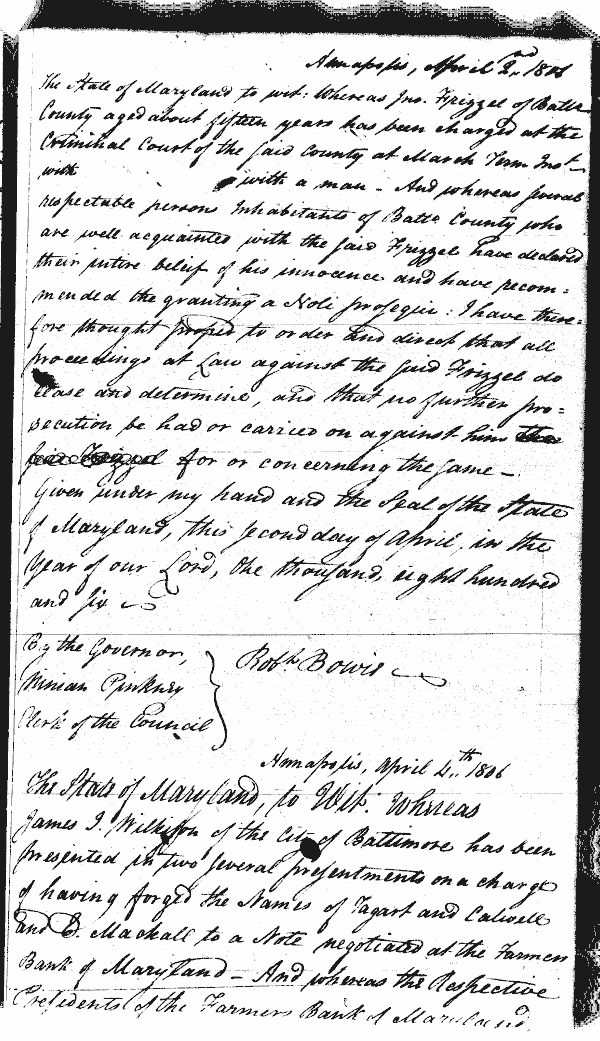 Annapolis, April 2nd 1806
The State of Maryland to wit: Whereas Jno. Frizzel of Balte
County aged about fifteen years has been charged at the
Criminal Court of the said County at March Term Inst
with with a man - And whereas several
respectable persons Inhabitants of Balte County who
are well acquainted with the said Frizzel have declared
their intire belief of his innocence and have recom=
mended the granting a Noli prosequi: I have there=
fore thought proper to order and direct that all
proceedings at Law against the said Frizzel do
cease and determine, and that no further pro=
secution be had or carried on against him the
said Frizzel for or concerning the same -
Given under my hand and the Seal of the State
of Maryland, this second day of April, in the
Year of our Lord, One thousand, eight hundred
and six
By the Governor,
Ninian Pinkney
Clerk of the Council
Robt. Bowie
Annapolis, April 4th 1806
The State of Maryland, to Wit: Whereas
James J. Wilkison of the City of Baltimore has been
presented in two several presentments on a charge
of having forged the Names of Tagart and Calwell
and B. Mackall to a Note negotiated at the Farmers
Bank of Maryland - And whereas the Respective
Presidents of the Farmers Bank of Maryland,